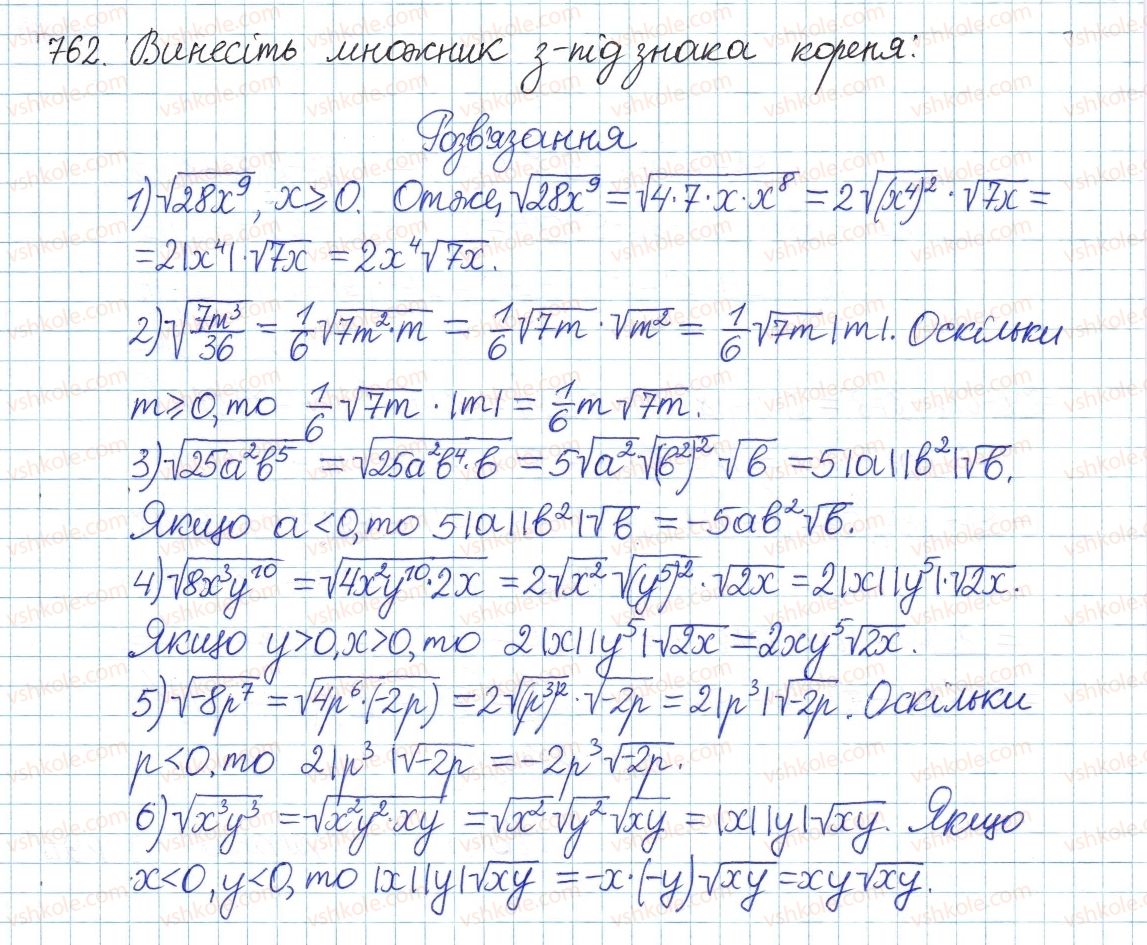 762. Винесіть множник з-під знака кореня:
Розв'язання
1) √28x⁹, x ⩾ 0. Отже, √28x⁹ = √4·7·x·x⁸ = 2√(x⁴)² · √7x =
= 2|x⁴|·√7x = 2x⁴√7x.
2) √7m³/36 = 1/6 √7m²·m = 1/6 √7m · √m² = 1/6 √7m |m|. Оскільки
m ⩾ 0, то 1/6 √7m · |m| = 1/6 m √7m.
3) √25a²b⁵ = √25a²b⁴·b = 5√a² √(b²)² √b = 5|a||b²|√b.
Якщо a < 0, то 5|a||b²|√b = -5ab²√b.
4) √8x³y¹⁰ = √4x²y¹⁰·2x = 2√x² √(y⁵)² · √2x = 2|x||y⁵|·√2x.
Якщо y > 0, x > 0, то 2|x||y⁵|√2x = 2xy⁵√2x.
5) √-8p⁷ = √4p⁶·(-2p) = 2√(p³)² · √-2p = 2|p³|√-2p. Оскільки
p < 0, то 2|p³|√-2p = -2p³√-2p.
6) √x³y³ = √x²y²·xy = √x² √y² √xy = |x||y|√xy. Якщо
x < 0, y < 0, то |x||y|√xy = -x·(-y)√xy = xy√xy.